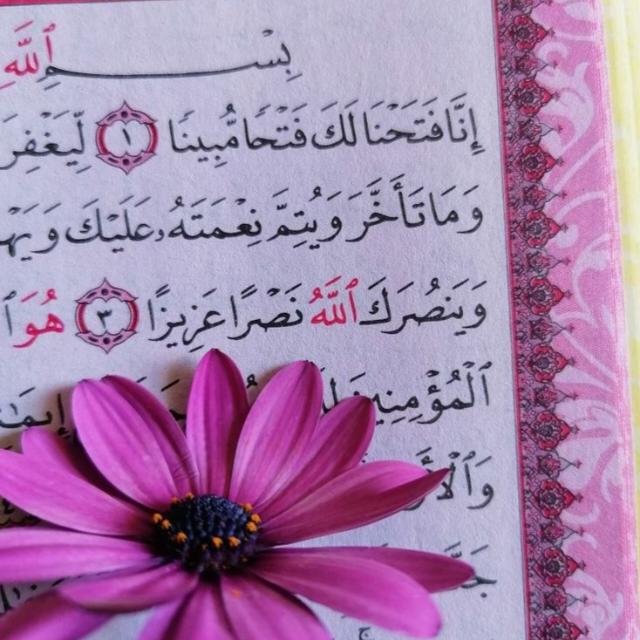 بِسْمِ ٱللَّهِ
إِنَّا فَتَحْنَا لَكَ فَتْحًا مُّبِينًا ١ لِّيَغْفِرَ
وَمَا تَأَخَّرَ وَيُتِمَّ نِعْمَتَهُۥ عَلَيْكَ وَيَهْ
وَيَنصُرَكَ ٱللَّهُ نَصْرًا عَزِيزًا ٣ هُوَ
ٱلْمُؤْمِنِينَ